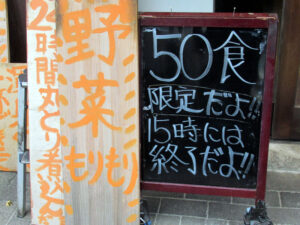 50食
限定だよ!!
15時には
終了だよ!!
野菜もりもり
24時間丸とり煮込